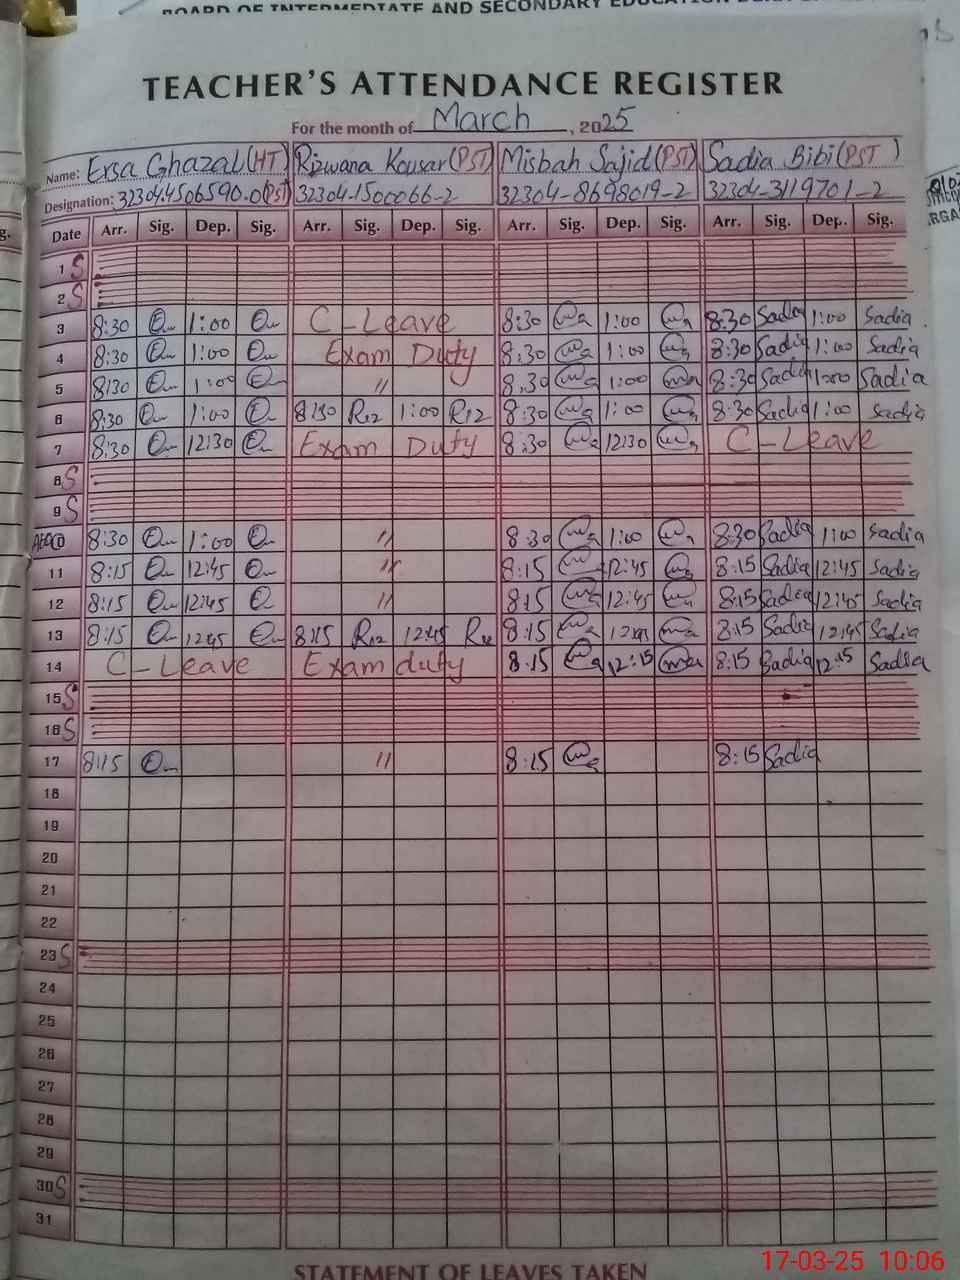 BOARD OF INTERMEDIATE AND SECONDARY
TEACHER'S ATTENDANCE REGISTER
For the month of March, 2025
Name: Ersa Ghazal (HT) Rizwana Kousar (PST) Misbah Sajid (PST) Sadia Bibi (PST)
Designation: 32304.4506590.0 (PST) 32304-1500066-2 32304-8698019-2 32304-3119701-2
Date Arr. Sig. Dep. Sig. Arr. Sig. Dep. Sig. Arr. Sig. Dep. Sig. Arr. Sig. Dep. Sig.
1 S
2 S
3 8:30 1:00 C-Leave 8:30 1:00 8:30 Sadia 1:00 Sadia
4 8:30 1:00 Exam Duty 8:30 1:00 8:30 Sadia 1:00 Sadia
5 8:30 1:00 " 8:30 1:00 8:30 Sadia 1:00 Sadia
6 8:30 1:00 8:30 1:00 8:30 1:00 8:30 Sadia 1:00 Sadia
7 8:30 12:30 Exam Duty 8:30 12:30 C-Leave
8 S
9 S
8:30 1:00 " 8:30 1:00 8:30 Sadia 1:00 Sadia
11 8:15 12:45 " 8:15 12:45 8:15 Sadia 12:45 Sadia
12 8:15 12:45 " 8:15 12:45 8:15 Sadia 12:45 Sadia
13 8:15 12:45 8:15 12:45 8:15 8:15 Sadia 12:45 Sadia
14 C-Leave Exam duty 8:15 12:15 8:15 Sadia 12:15 Sadia
15 S
16 S
17 8:15 " 8:15 8:15 Sadia
18
19
20
21
22
23 S
24
25
26
27
28
29
30 S
31
STATEMENT OF LEAVES TAKEN
17-03-25 10:06